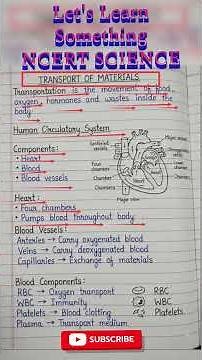 Let's Learn
Something
NCERT SCIENCE
TRANSPORT OF MATERIALS
Transportation is the movement of food,
oxygen, hormones and wastes inside the
body.
Human Circulatory System
Components:
• Heart
• Blood
• Blood vessels
Four
chambers
Chamber
Chambers
Major
Major vein
Heart :
• Four chambers
• Pumps blood throughout body
Blood Vessels :
Arteries → Carry oxygenated blood
Veins → Carry deoxygenated blood
Capillaries → Exchange of materials
Blood Components:
RBC → Oxygen transport
RBC
WBC → Immunity
WBC
Platelets → Blood clotting
Platelets
Plasma → Transport medium
SUBSCRIBE